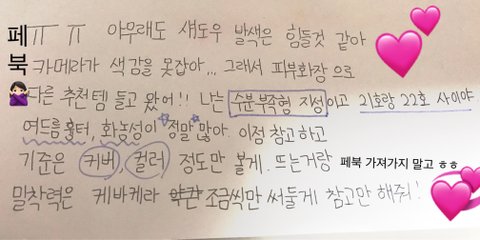 페ㅠ ㅠ 아무래도 섀도우 발색은 힘들것 같아
북 카메라가 색감을 못잡아... 그래서 피부화장 으로
다른 추천템 들고 왔어!! 나는 수분부족형 지성이고 21호랑 22호 사이야.
여드름 흉터, 화농성이 정말 많아. 이점 참고하고
기준은 커버, 컬러 정도만 볼게. 뜨는거랑
페북 가져가지 말고 ㅎㅎ
밀착력은 케바케라 약간 조금씩만 써둘게 참고만 해줘!